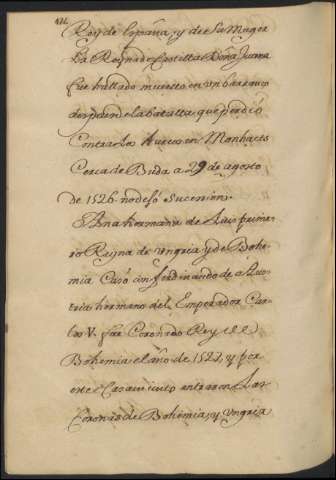 Rey de España, y de Su Muger
La Reyna de Castilla Doña Juana
fue hallado muerto en vn barranco
despues de la batalla que perdió
Contra los turcos en Monhacts
Cerca de Buda a 29 de agosto
de 1526 no dejó Sucesion.
Ana hermana de Luis prime
ro Reyna de vngria y de Bohe
mia Casó con ferdinando de Aus
tria hermano del Emperador Car
los V. fue Coronado Rey de
Bohemia el año de 1527, y por
este Casamiento entraron Las
Coronas de Bohemia, y Vngria